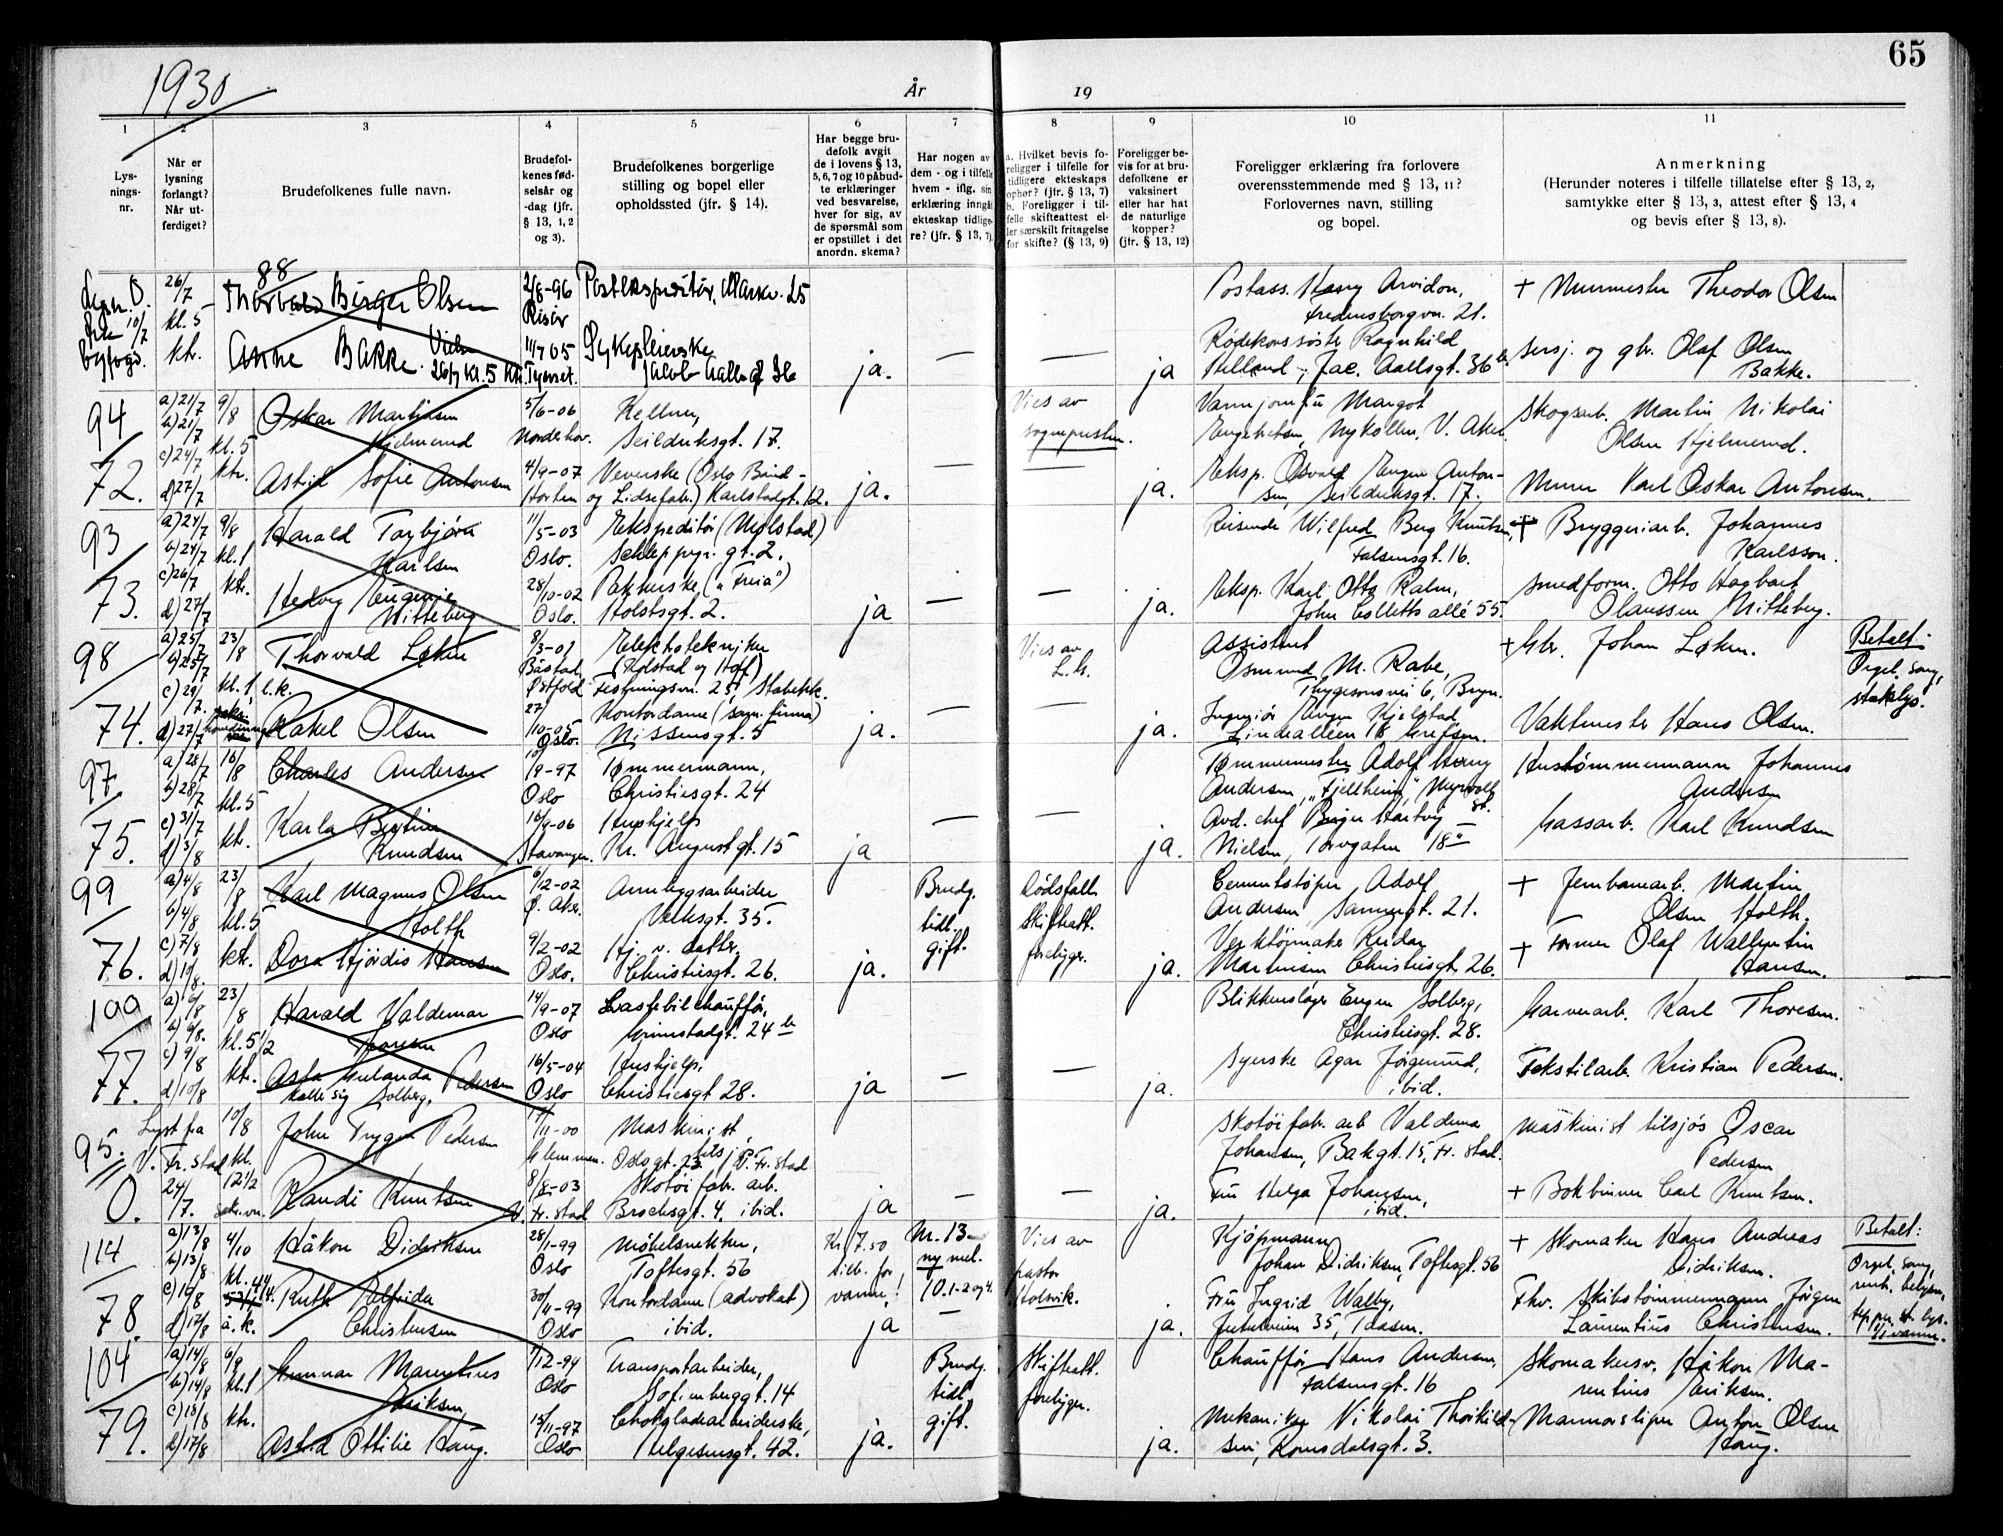 65
1930
År
19
1
2
3
4
5
6
7
8
9
10
11
Lys-
nings-
nr.
Når er
lysning
forlangt?
Når ut-
ferdiget?
Brudefolkenes fulle navn.
Brudefol-
kenes fød-
selsår og
-dag (jfr.
§ 13, 1, 2
og 3).
Brudefolkenes borgerlige
stilling og bopel eller
opholdssted (jfr. § 14).
Har begge bru-
defolk avgit
de i lovens § 13,
5, 6, 7 og 10 påbud-
te erklæringer
ved besvarelse,
hver for sig, av
de spørsmål som
er opstillet i det
anordn. skema?
Har nogen av
dem - og i tilfelle
hvem - iflg. sin
erklæring inngåt
ekteskap tidlige-
re? (jfr. § 13, 7).
a. Hvilket bevis fo-
religger i tilfelle for
tidligere ekteskaps
ophør? (jfr. § 13, 7)
b. Foreligger i til-
felle skifteattest el-
ler særskilt fritagelse
for skifte? (§ 13, 9)
Foreligger be-
vis for at bru-
defolkene er
vaksinert
eller har hat
de naturlige
kopper?
(jfr. § 13, 12)
Foreligger erklæring fra forlovere
overensstemmende med § 13, 11?
Forlovernes navn, stilling
og bopel.
Anmerkning
(Herunder noteres i tilfelle tillatelse efter § 13, 2,
samtykke efter § 13, 3, attest efter § 13, 4
og bevis efter § 13, 8).
88
26/7
kl. 5
ktr.
10/7
Thorvald Birger Olsen
2/8-96
Risør
Postekspeditør,
25
Postass.
Arvidson,
Fredensborgvn. 21.
+ Murmester Theodor Olsen
Anne Bakke
26/7 kl. 5 ktr.
11/7 05
Tynset.
Sykepleierske
Jacob Aalls gt 36
ja.
—
—
ja
Rødekorssøster Ragnhild
Jac. Aallsgt. 36 b
Sersj. og gbr. Olaf Olsen
Bakke.
94
72.
a) 21/7
b) 21/7
c) 24/7
d) 27/7
9/8
kl. 5
ktr.
Oskar Martinsen
Hjelmerud
5/6-06
Norderhov.
Kellner,
Seilduksgt. 17.
Vies av
sognepresten.
Margot
Engebretsen, Nykollen, V. Aker.
Skogsarb. Martin Nikolai
Olsen Hjelmerud.
Astrid Sofie Antonsen
4/9-07
Horten
Veverske (Oslo Bånd-
og Lidsefabr.) Karlstadgt. 12.
ja.
—
—
ja.
Eksp. Osvald Eugen Anton-
sen, Seilduksgt. 17.
Murer Karl Oskar Antonsen.
93
73.
a) 24/7
b) 24/7
c) 26/7
d) 27/7
9/8
kl. 1
ktr.
Harald Torbjørn
Karlsen
11/5-03
Oslo.
Ekspeditør (Mølstad)
Schleppegr. gt. 2.
Reisende Wilfred Berg Knutsen,
Falsensgt. 16.
+ Bryggeriarb. Johannes
Karlsson.
Hedvig Eugenie
Witteberg
28/10-02
Oslo.
Pakkerske („Freia")
Holstsgt. 2.
ja
—
—
ja.
Eksp. Karl Otto Ralm,
John Colletts allé 55.
Smedform. Otto Hagbart
Olaussen Witteberg.
98
74.
a) 25/7
b) 25/7
c) 29/7.
d) 27/7
23/8
kl. 1, l.k.
Thorvald Løken
8/3-01
Båstad,
Østfold
Elektotekniker
(Kolstad og Hoff)
Festningsvn. 25, Stabekk.
Vies av
L. H.
Assistent
Osmund M. Rabe,
Thygesonsvei 6, Bryn.
+ Gbr. Johan Løken.
Betalt:
Orgel, sang,
steklys.
Rakel Olsen
27/10-05
Oslo.
Kontordame (samme firma)
Nissensgt. 5
ja.
—
—
ja.
Ingeniør
Kjelstad
Lindealléen 18 Grefsen.
Vaktmester Hans Olsen.
97.
75.
a) 28/7
b) 28/7
c) 31/7
d) 3/8
16/8
kl. 5
ktr.
Charles Andersen
/9-97
Oslo
Tømmermann,
Christiesgt. 24
Tømmermester Adolf
Andersen, „Fjellheim", Myrvoll
st.
Hustømmermann Johannes
Andersen
Karla Bertine
Knudsen
16/9-06
Stavanger.
Hushjelp
Kr. Augustgt. 15
ja
—
—
ja.
Avd. chef Birger Hartvig
Nielsen, Torvgaten 18
Gassarb. Karl Knudsen
99
76.
a) 4/8
b) 4/8
c) 7/8
d) 10/8.
23/8
kl. 5
ktr.
Karl Magnus Olsen
Holth
6/12-02
Ø. Aker.
Anleggsarbeider
Verksgt. 35.
Brudg.
tidl.
gift.
Dødsfall.
Skifteatt.
foreligger.
Cementstøper Adolf
Andersen Sannergt. 21.
+ Jernbanearb. Martin
Olsen Holth.
Dora Hjördis Hansen
9/2-02
Oslo.
Hj. v. datter,
Christiesgt. 26.
ja.
ja.
Verktøimaker Reidar
Martinsen Christiesgt. 26.
+ Former Olaf Wallentin
Hansen.
100
77.
a) 6/8
b) 6/8.
c) 9/8
d) 10/8
23/8
kl. 5 1/2
ktr.
Harald Valdemar
Thoresen
14/9-07
Oslo
Lastebilchauffør,
Grimstadgt. 24 b
Blikkenslager Eugen Solberg,
Christiesgt. 28.
Garverarb. Karl Thoresen.
Asta Gulanda Pedersen
kaller sig Solberg,
16/5-04
Oslo
Hushjelp.
Christiesgt 28.
ja
—
—
ja.
Syerske Agar Jørgerud,
ibid.
Tekstilarb. Kristian Pedersen.
95.
0.
Lyst fra
V. Fr. stad
24/7.
10/8
kl.
12 1/2
John Trygve Pedersen
17/11-00
Glemmen.
Maskinist
tilsjøs
Oslogt. 23 V. Fr. stad
Skotøifabr. arb. Valdemar
Johansen, Bakgt. 15, Fr. stad.
Maskinist tilsjøs Oscar
Pedersen
Randi Knutsen
8/8-03
V. Fr. stad
Skotøifabr. arb.
Brochsgt. 4. ibid.
ja
—
—
ja.
Fru Helga Johansen,
ibid.
+ Bokbinner Carl Knutsen.
114
78.
a) 13/8
b) 13/8
c) 16/8
d) 17/8
4/10
kl.
å. k.
Håkon Didriksen
28/1-99
Oslo
Møbelsnekker,
Toftesgt. 56
Kr. 7.50
for
vanne!
Nr. 13
ny mel.
10.1-2 og 4.
Vies av
pastor
Holsvik.
Kjøpmann
Johan Didriksen, Toftesgt. 56
+ Skomaker Hans Andreas
Didriksen.
Betalt:
Orgel, sang,
Ruth Elfrida
Christensen
30/11-99
Oslo
Kontordame (advokat)
ibid.
ja
—
ja.
Fru Ingrid Walby,
35, Taasen.
Fhv. Skibstømmermann Jørgen
Laurentius Christensen.
104
79.
a) 14/8
b) 14/8
c) 18/8
d) 17/8
6/9
kl. 1
ktr.
Gunnar Marentius
Eriksen,
1/12-94
Oslo
Transportarbeider,
Sofienberggt. 14
Brudg.
tidl.
gift.
Skifteatt.
foreligger.
Chauffør Hans Andersen,
Falsensgt. 16
Skomakersv. Håkon Ma-
rentius Eriksen.
Astrid Ottilie Haug.
15/11-97
Oslo
Chokoladearbeiderske,
Helgesensgt. 42.
ja.
ja.
Mekaniker Nikolai Thorkild-
sen, Romsdalsgt. 3.
Marmorsliper Anton Olsen
Haug.